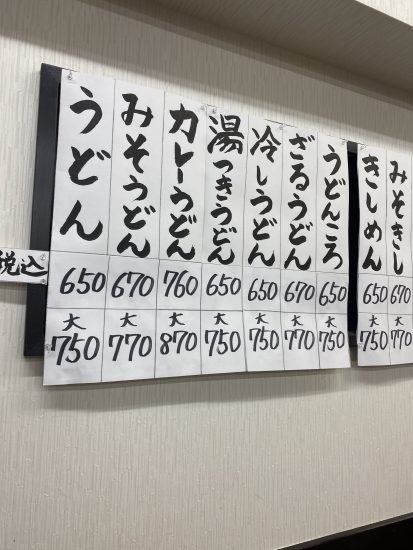 税込
うどん
650
大
750
みそうどん
670
大
770
カレーうどん
760
大
870
湯つきうどん
650
大
750
冷しうどん
650
大
750
ざるうどん
670
大
770
うどんころ
650
大
750
きしめん
650
大
750
みそきし
670
大
770